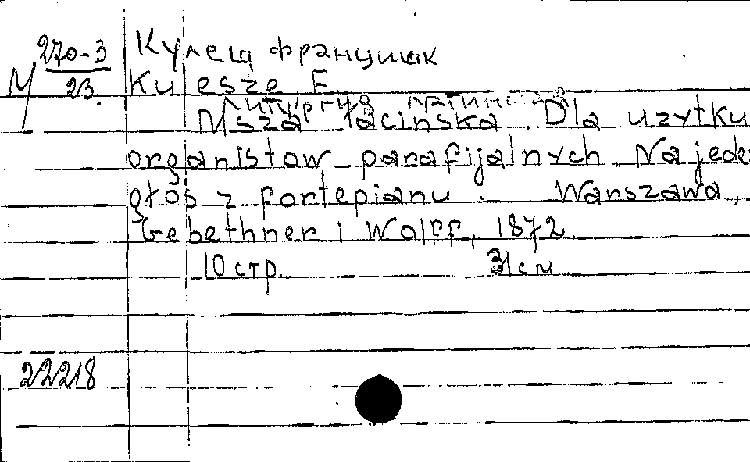 M 270-3/23.
Кулеш Францишак
Kulesze F
Литургия латинская
Msza łacinska. Dla uzytku
organistaw parafijalnych Na jeden
głos z fortepianu. Warszawa,
Gebethner i Wolff, 1872
10 стр. 31 см
22218